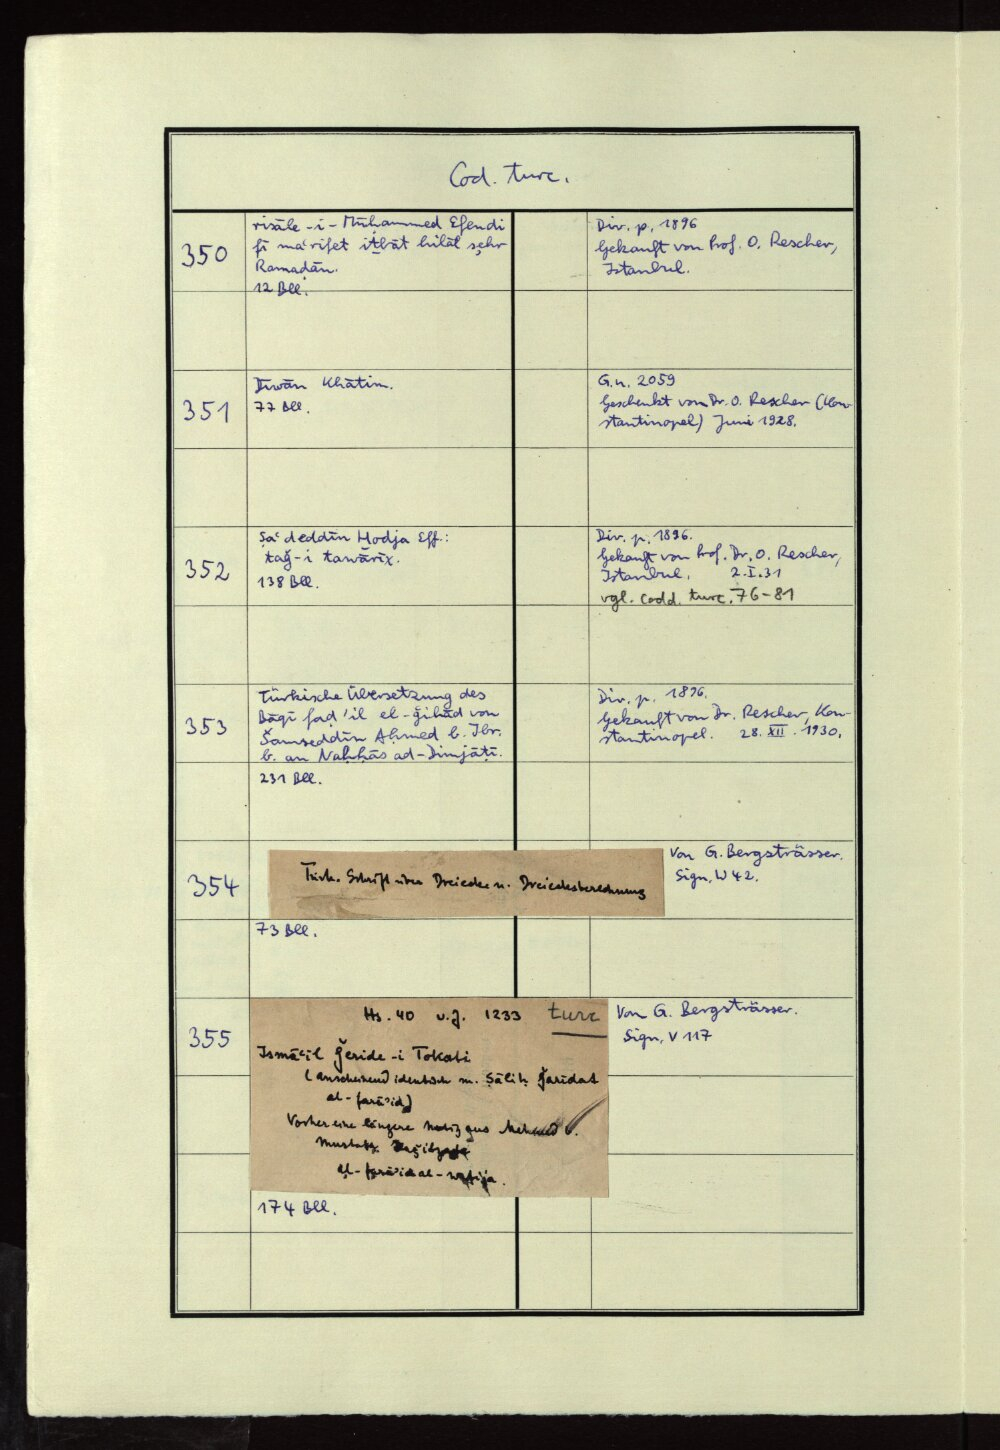 Cod. turc.
350
risāle-i-Muḥammed Efendi
fī maʿrifet iṯbāt hilāl šehr
Ramaḍān.
12 Bll.
Div. p. 1896
Gekauft von Prof. O. Rescher,
Istanbul.
351
Dīwān Khātim.
77 Bll.
G.n. 2059
Geschenkt von Dr. O. Rescher (Kon-
stantinopel) Juni 1928.
352
Saʿdeddīn Hodja Eff.:
tāǧ-i tawārīx.
138 Bll.
Div. p. 1896.
Gekauft von Prof. Dr. O. Rescher,
Istanbul. 2.I.31
vgl. codd. turc. 76-81
353
Türkische Übersetzung des
Bāqī faḍʾil el-ǧihād von
Šamseddīn Aḥmed b. Ibr.
b. an Naḥḥās ad-Dimjāṭī.
231 Bll.
Div. p. 1896.
Gekauft von Dr. Rescher, Kon-
stantinopel. 28. XII. 1930.
354
Türk. Schrift über Dreiecke u. Dreiecksberechnung
73 Bll.
Von G. Bergsträsser.
Sign. W 42.
355
Hs. 40 v.J. 1233 turc
Ismāʿīl Ǧeride-i Tokati
(anscheinend identisch m. Ṣāliḥ Ǧarīdat
al-farāʾiḍ)
Vorher eine längere Notiz aus Mehmed b.
Mustafa
al-farāʾid al-
174 Bll.
Von G. Bergsträsser.
Sign. V 117